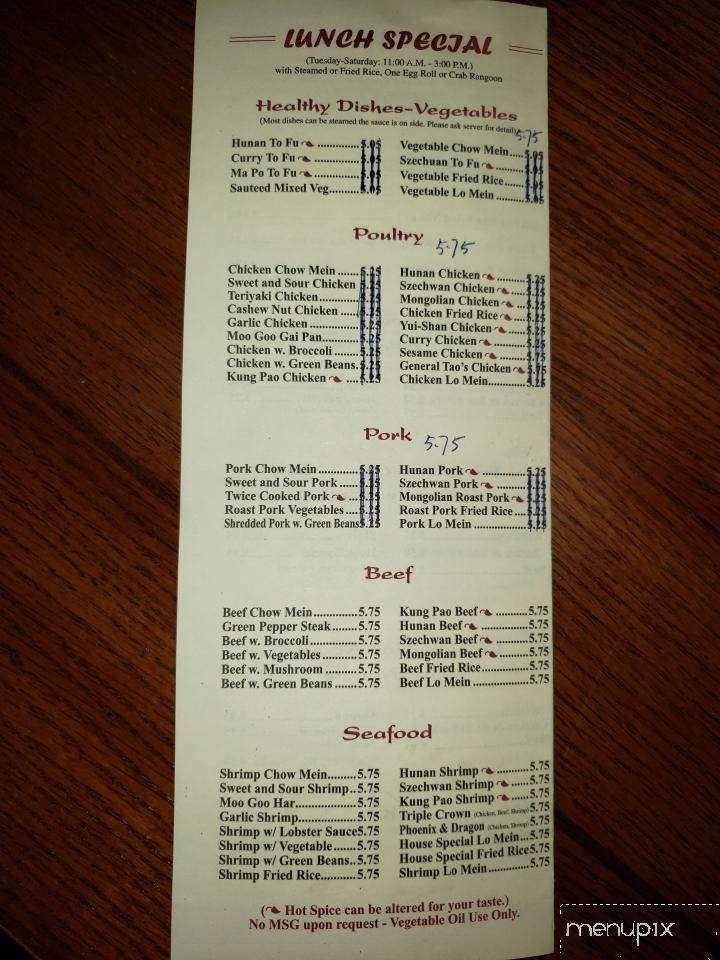 LUNCH SPECIAL
(Tuesday-Saturday: 11:00 A.M. - 3:00 P.M.)
with Steamed or Fried Rice, One Egg Roll or Crab Rangoon
Healthy Dishes-Vegetables
(Most dishes can be steamed the sauce is on side. Please ask server for detail)
5.75
Hunan To Fu ..............5.05
Curry To Fu ..............5.05
Ma Po To Fu ..............5.05
Sauteed Mixed Veg.........5.05
Vegetable Chow Mein....5.05
Szechuan To Fu ........5.05
Vegetable Fried Rice.....5.05
Vegetable Lo Mein ........5.05
Poultry 5.75
Chicken Chow Mein ......5.25
Sweet and Sour Chicken 5.25
Teriyaki Chicken...........5.25
Cashew Nut Chicken ....5.25
Garlic Chicken .............5.25
Moo Goo Gai Pan..........5.25
Chicken w. Broccoli ......5.25
Chicken w. Green Beans.5.25
Kung Pao Chicken ....5.25
Hunan Chicken ..........5.25
Szechwan Chicken .......5.25
Mongolian Chicken ....5.25
Chicken Fried Rice ....5.25
Yui-Shan Chicken .......5.25
Curry Chicken ..........5.25
Sesame Chicken ........5.75
General Tao's Chicken 5.75
Chicken Lo Mein..........5.25
Pork 5.75
Pork Chow Mein ..........5.25
Sweet and Sour Pork .....5.25
Twice Cooked Pork ...5.25
Roast Pork Vegetables ....5.25
Shredded Pork w. Green Beans5.25
Hunan Pork ..............5.25
Szechwan Pork ..........5.25
Mongolian Roast Pork 5.25
Roast Pork Fried Rice....5.25
Pork Lo Mein ..............5.25
Beef
Beef Chow Mein............5.75
Green Pepper Steak.......5.75
Beef w. Broccoli ............5.75
Beef w. Vegetables .........5.75
Beef w. Mushroom ........5.75
Beef w. Green Beans ......5.75
Kung Pao Beef ..........5.75
Hunan Beef ..............5.75
Szechwan Beef ..........5.75
Mongolian Beef ........5.75
Beef Fried Rice............5.75
Beef Lo Mein ..............5.75
Seafood
Shrimp Chow Mein.........5.75
Sweet and Sour Shrimp..5.75
Moo Goo Har.................5.75
Garlic Shrimp................5.75
Shrimp w/ Lobster Sauce5.75
Shrimp w/ Vegetable .......5.75
Shrimp w/ Green Beans..5.75
Shrimp Fried Rice..........5.75
Hunan Shrimp ..........5.75
Szechwan Shrimp .......5.75
Kung Pao Shrimp .......5.75
Triple Crown (Chicken, Beef, Shrimp)5.75
Phoenix & Dragon (Chicken, Shrimp)5.75
House Special Lo Mein...5.75
House Special Fried Rice5.75
Shrimp Lo Mein............5.75
( Hot Spice can be altered for your taste.)
No MSG upon request - Vegetable Oil Use Only.
menupix